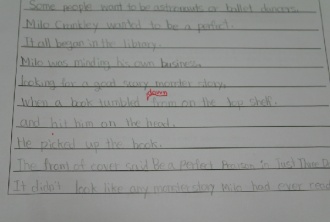 Some people want to be astronauts or ballet dancers.
Milo Crinkley wanted to be a perfect.
It all began in the library.
Milo was minding his own business.
looking for a good scary monster story.
down
When a book tumbled from on the top shelf.
and hit him on the head.
He picked up the book.
The front of cover said Be a Perfect Person in Just Three Da
It didn't look like any monster story Milo had ever read